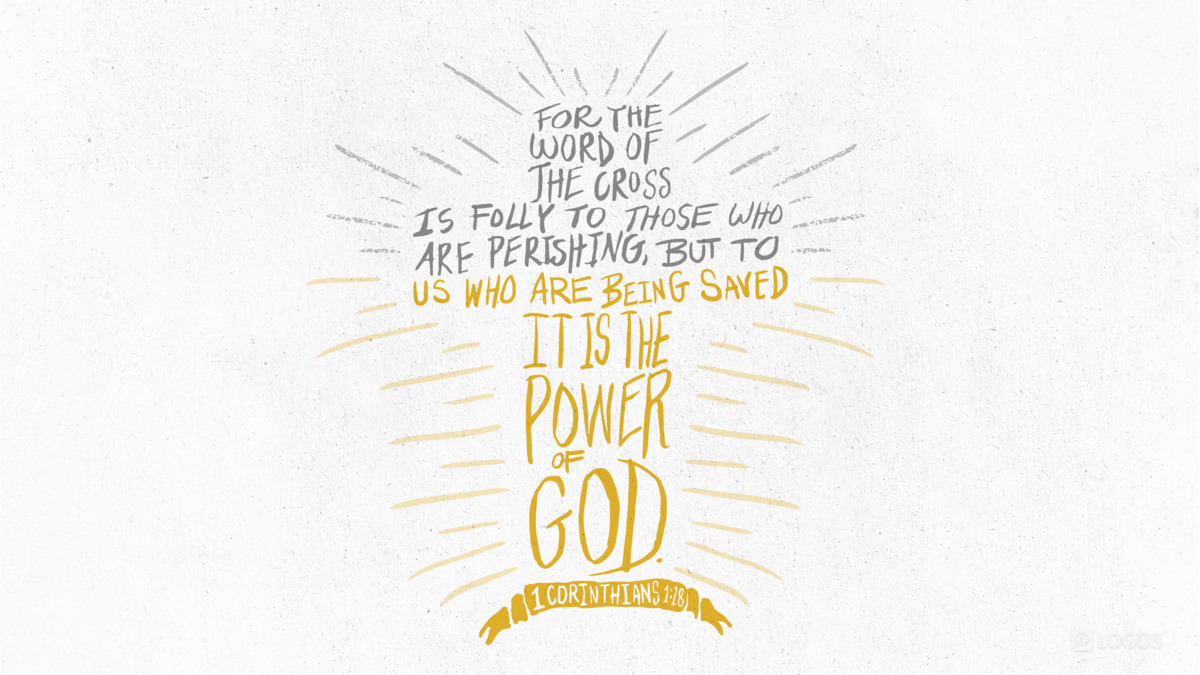 FOR THE
WORD OF
THE CROSS
IS FOLLY TO THOSE WHO
ARE PERISHING, BUT TO
US WHO ARE BEING SAVED
IT IS THE
POWER
OF
GOD.
1 CORINTHIANS 1:18
LOGOS